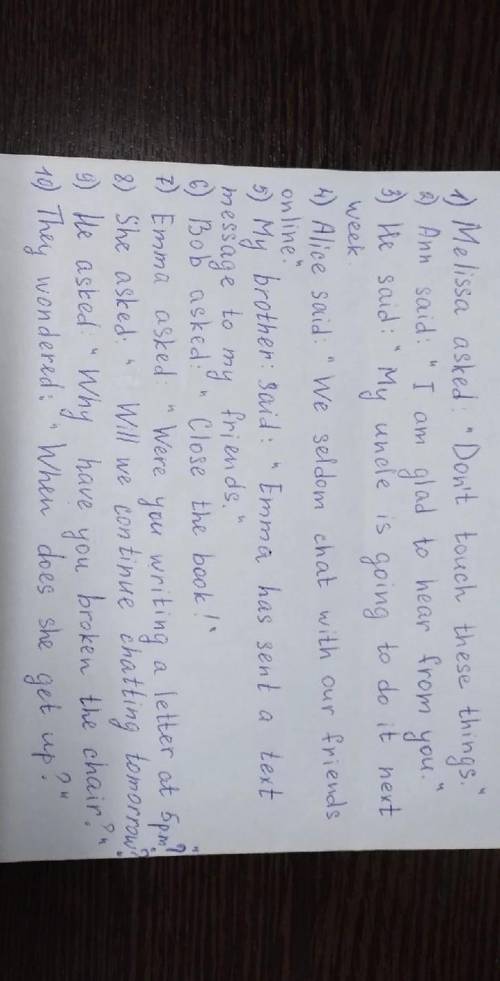 1) Melissa asked: „Don't touch these things."
2) Ann said: „I am glad to hear from you."
3) He said: „My uncle is going to do it next
week.
4) Alice said: „We seldom chat with our friends
online."
5) My brother: said: „Emma has sent a text
message to my friends."
6) Bob asked: „Close the book!"
7) Emma asked: „Were you writing a letter at 5pm?"
8) She asked: „Will we continue chatting tomorrow?"
9) He asked: „Why have you broken the chair?"
10) They wondered: „When does she get up?"